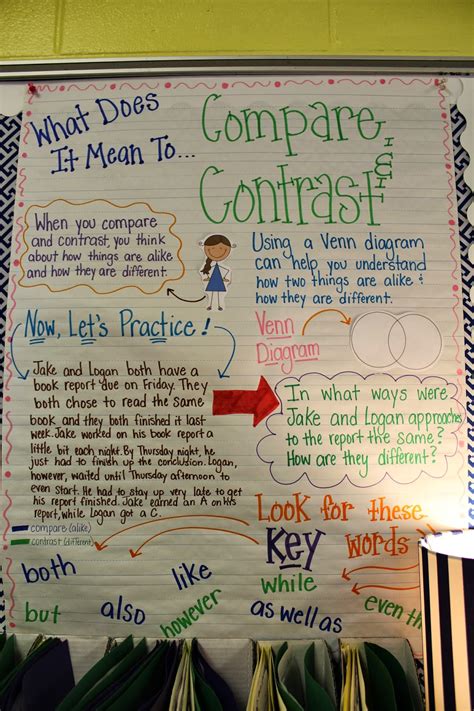 What Does
It Mean To...
Compare
and
Contrast
When you compare
and contrast, you think
about how things are alike
and how they are different.
Using a Venn diagram
can help you understand
how two things are alike &
how they are different.
Now, Let's Practice!
Venn
Diagram
Jake and Logan both have a
book report due on Friday. They
both chose to read the same
book and they both finished it last
week. Jake worked on his book report a
little bit each night. By Thursday night, he
just had to finish up the conclusion. Logan,
however, waited until Thursday afternoon to
even start. He had to stay up very late to get
his report finished. Jake earned an A on his
report, while Logan got a C.
In what ways were
Jake and Logan approaches
to the report the same?
How are they different?
compare (alike)
contrast (different)
Look for these
Key words
both
like
while
even
but
also
however
as well as